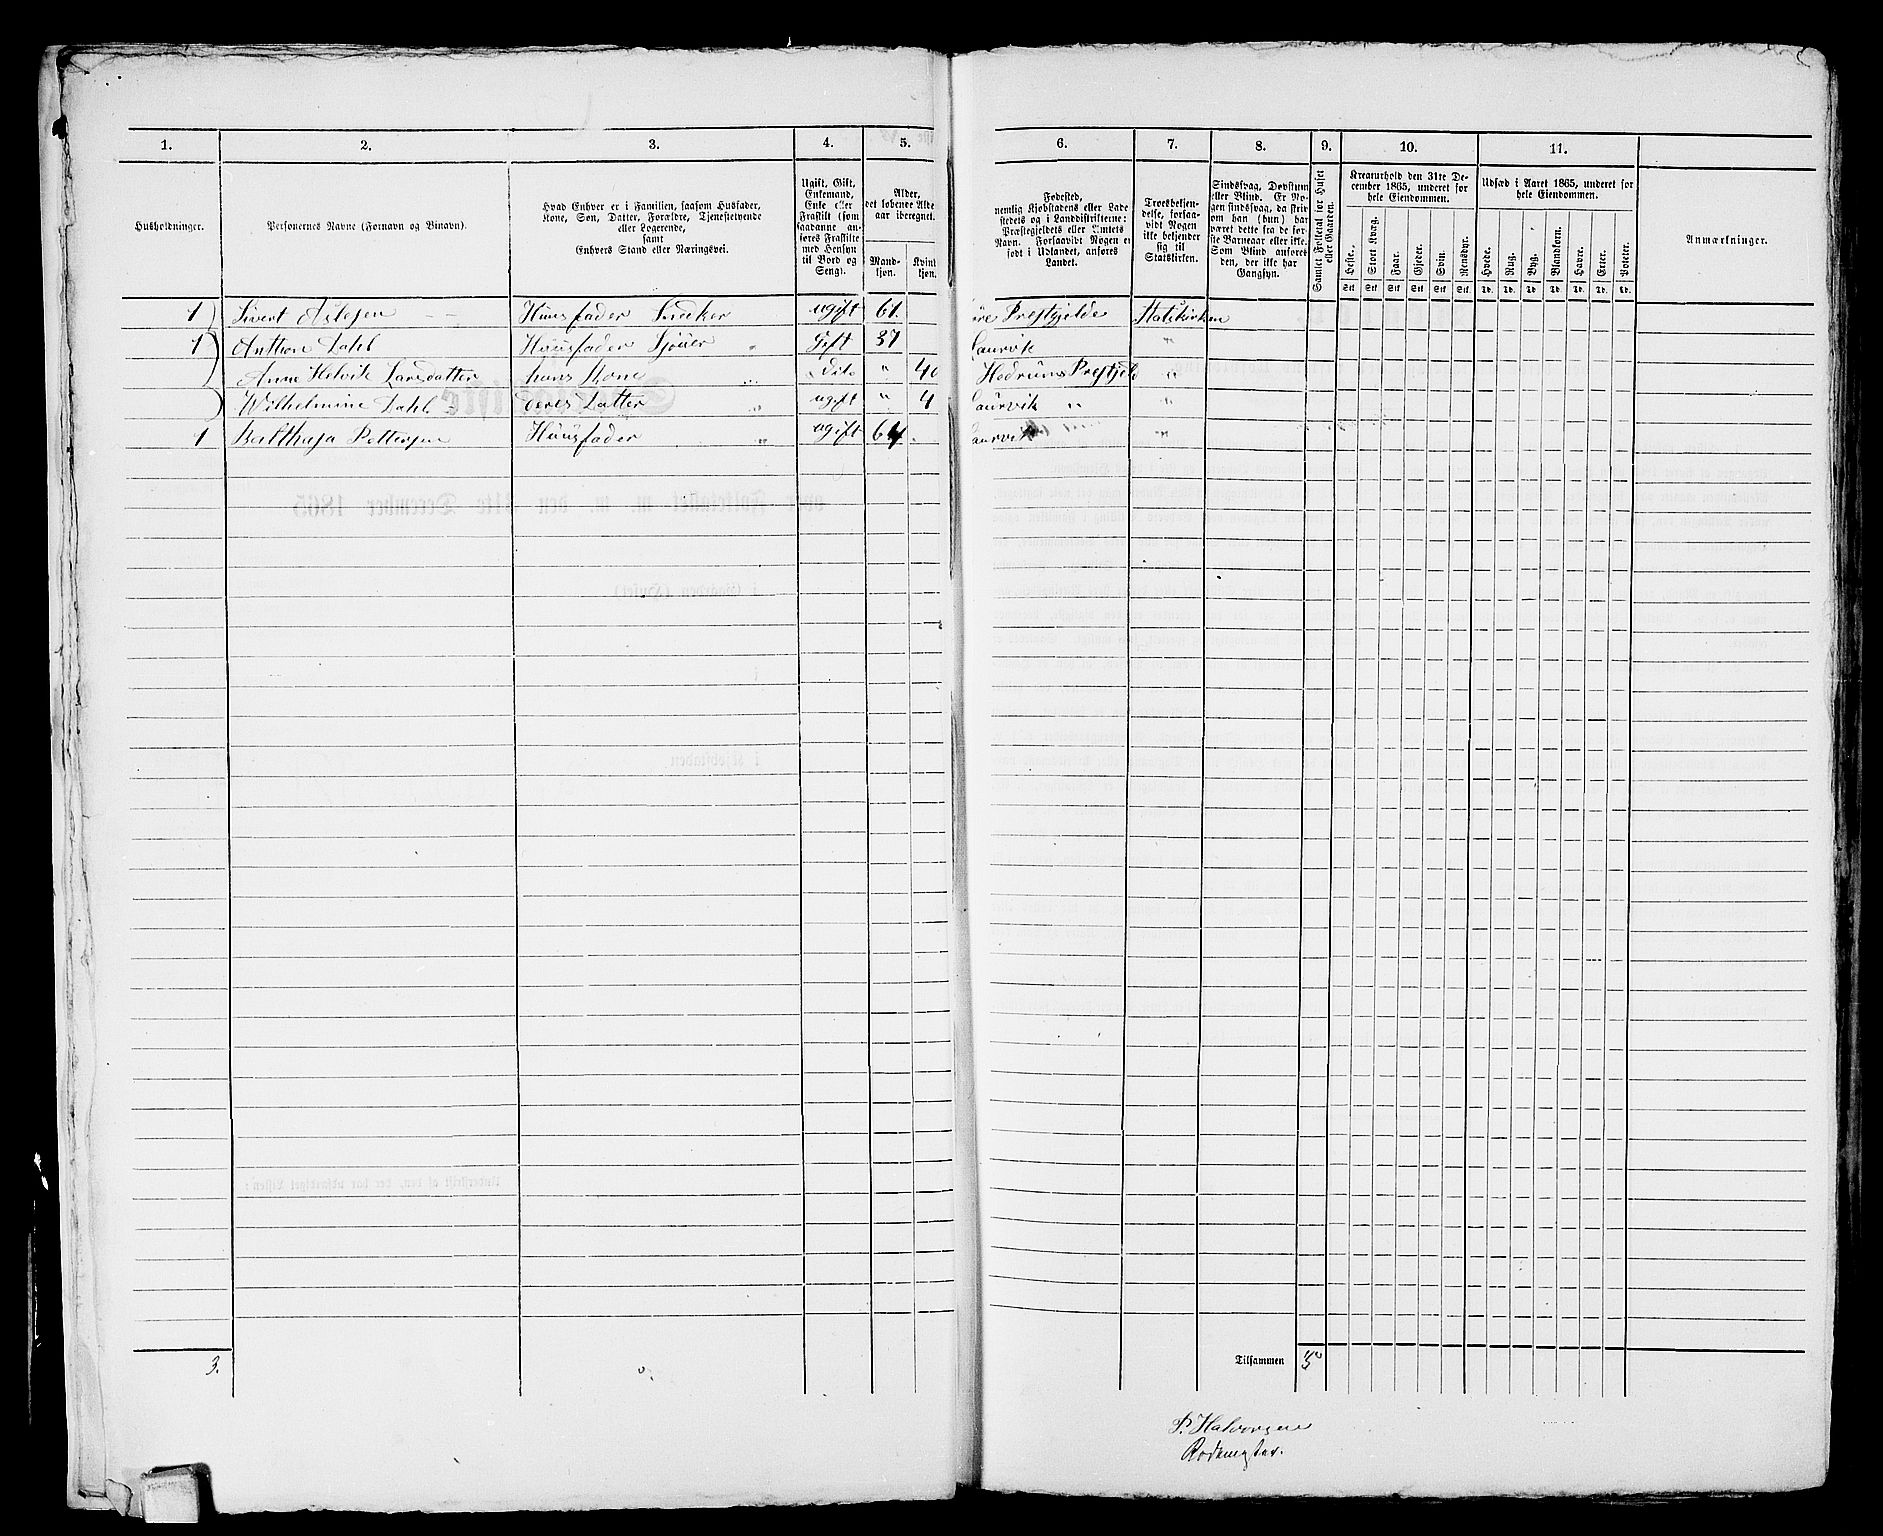 1. 2. 3. 4. 5. 6. 7. 8. 9. 10. 11.
Husholdninger.
Personernes Navne (Fornavn og Binavn).
Hvad Enhver er i Familien, saasom Husfader,
Kone, Søn, Datter, Forældre, Tjenestetyende
eller Logerende,
samt
Enhvers Stand eller Næringsvei.
Ugift, Gift,
Enkemand,
Enke eller
Fraskilt (som
saadanne an-
føres Fraskilte
med Hensyn
til Bord og
Seng).
Alder,
det løbende Alders-
aar iberegnet.
Mand-
kjøn.
Kvind
kjøn.
Fødested,
nemlig Kjøbstadens eller Lade
stedets og i Landdistrikterne:
Præstegjeldets eller Amtets
Navn. Forsaavidt Nogen er
født i Udlandet, anføres
Landet.
Troesbekjen-
delse, forsaa-
vidt Nogen
ikke bekjender
sig til
Statskirken.
Sindssvag, Døvstum
eller Blind. Er No-
gen sindssvag, da skriv
om han (hun) har
været dette fra de før-
ste Barneaar eller ikke.
Som Blind anføres
den, der ikke har
Gangsyn.
Samlet Folketal for Huset
eller Gaarden.
Kreaturhold den 31te De-
cember 1865, underet for
hele Eiendommen.
Heste. Stort Kvæg. Faar. Gjeder. Svin. Rensdyr.
Stk Stk Stk Stk Stk Stk
Udsæd i Aaret 1865, underet for
hele Eiendommen.
Hvede. Rug. Byg. Blandkorn. Havre. Erter. Poteter.
Td. Td. Td. Td. Td. Td. Td.
Anmærkninger.
1 Sivert Aslesen Huusfader Sneker ugift 61. Prestgjelde Statskirken
1 Anthon Dahl Huusfader Sjøuer Gift 37 Laurvik "
Anne Helvik Larsdatter hans Kone Dito " 40 Hedrums Prestgjeld "
Wilhelmine Dahl deres Datter ugift " 4 Laurvik " "
1 Balthasa Pettersen Huusfader " ugift 64 Laurvik "
3.
Tilsammen "5"
P. Halvorsen
Rodemester.